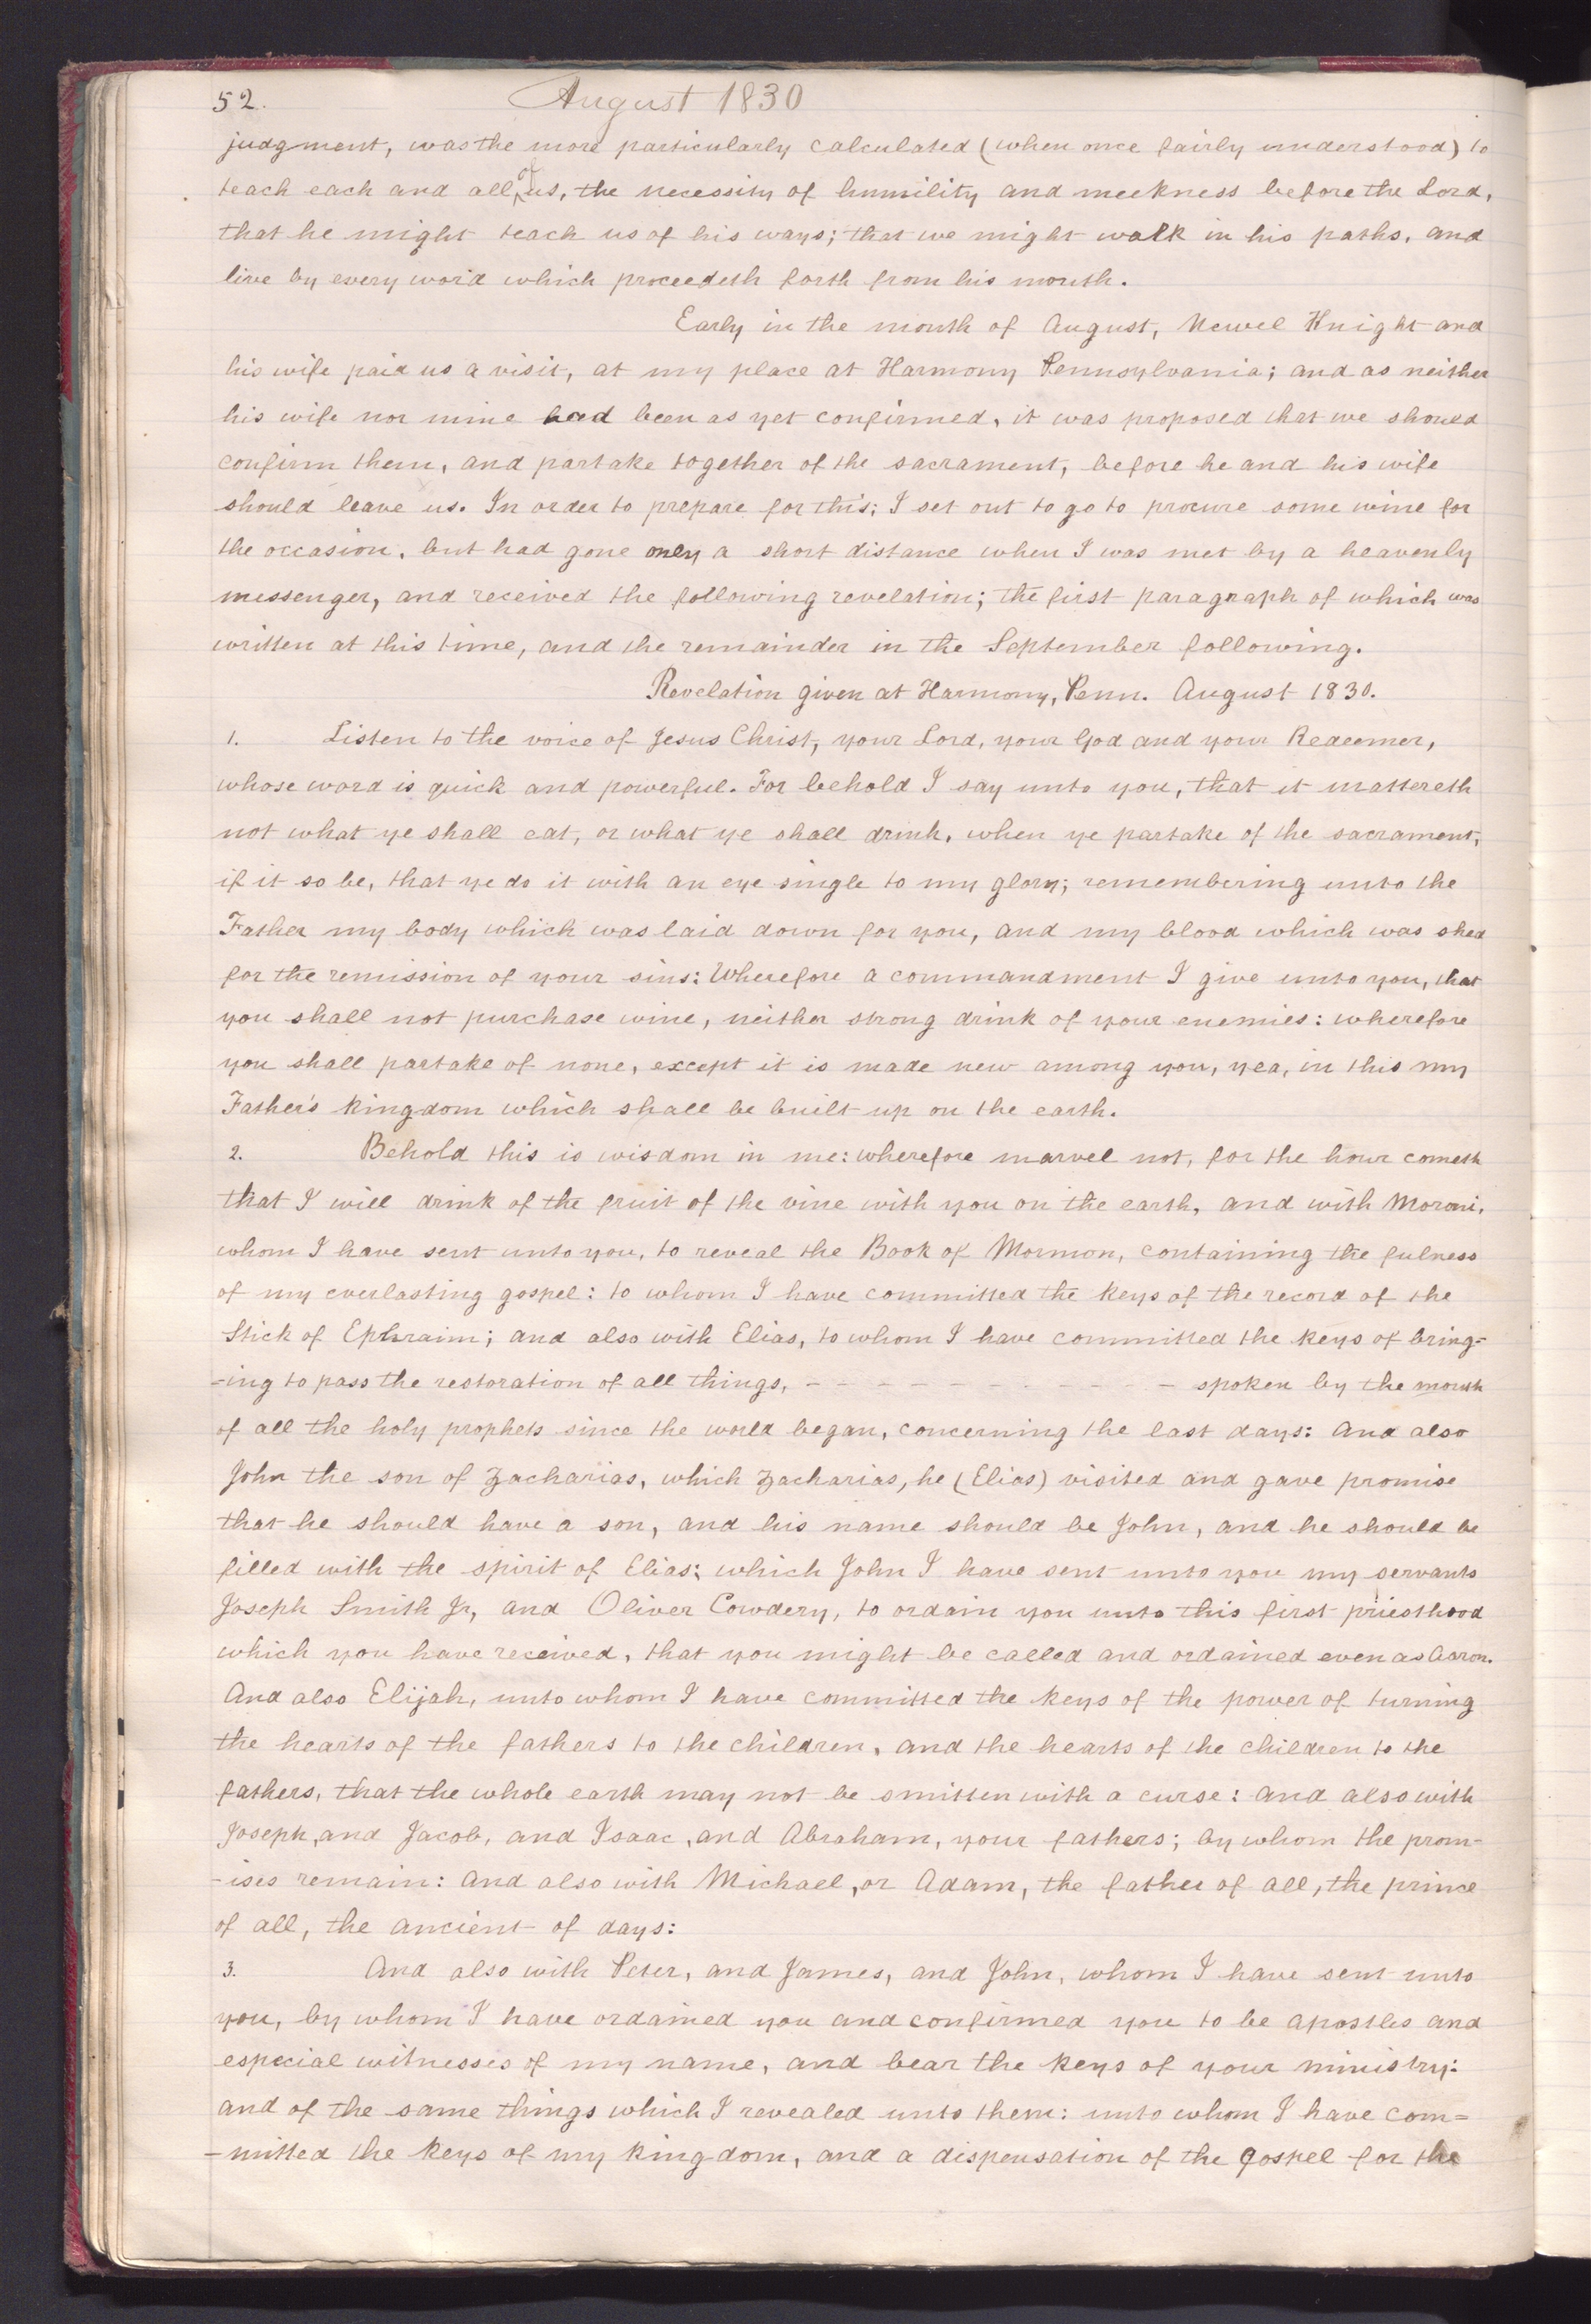 52. August 1830
judgment, was the more particularly calculated (when once fairly understood) to
teach each and all of us, the necessity of humility and meekness before the Lord,
that he might teach us of his ways; that we might walk in his paths, and
live by every word which proceedeth forth from his mouth.
Early in the month of August, Newel Knight and
his wife paid us a visit, at my place at Harmony Pennsylvania; and as neither
his wife nor mine had been as yet confirmed, it was proposed that we should
confirm them, and partake together of the sacrament, before he and his wife
should leave us. In order to prepare for this; I set out to go to procure some wine for
the occasion, but had gone only a short distance when I was met by a heavenly
messenger, and received the following revelation; the first paragraph of which was
written at this time, and the remainder in the September following.
Revelation given at Harmony, Penn. August 1830.
1. Listen to the voice of Jesus Christ, your Lord, your God and your Redeemer,
whose word is quick and powerful. For behold I say unto you, that it mattereth
not what ye shall eat, or what ye shall drink, when ye partake of the sacrament,
if it so be, that ye do it with an eye single to my glory; remembering unto the
Father my body which was laid down for you, and my blood which was shed
for the remission of your sins: Wherefore a commandment I give unto you, that
you shall not purchase wine, neither strong drink of your enemies: wherefore
you shall partake of none, except it is made new among you, yea, in this my
Father's kingdom which shall be built up on the earth.
2. Behold this is wisdom in me: wherefore marvel not, for the hour cometh
that I will drink of the fruit of the vine with you on the earth, and with Moroni,
whom I have sent unto you, to reveal the Book of Mormon, containing the fulness
of my everlasting gospel: to whom I have committed the keys of the record of the
Stick of Ephraim; and also with Elias, to whom I have committed the keys of bring=
-ing to pass the restoration of all things, - - - - - - - - - - - spoken by the mouth
of all the holy prophets since the world began, concerning the last days: And also
John the son of Zacharias, which Zacharias, he (Elias) visited and gave promise
that he should have a son, and his name should be John, and he should be
filled with the spirit of Elias; which John I have sent unto you my servants
Joseph Smith Jr, and Oliver Cowdery, to ordain you unto this first priesthood
which you have received, that you might be called and ordained even as Aaron.
And also Elijah, unto whom I have committed the keys of the power of turning
the hearts of the fathers to the children, and the hearts of the children to the
fathers, that the whole earth may not be smitten with a curse: and also with
Joseph, and Jacob, and Isaac, and Abraham, your fathers; by whom the prom-
-ises remain: And also with Michael, or Adam, the father of all, the prince
of all, the ancient of days:
3. And also with Peter, and James, and John, whom I have sent unto
you, by whom I have ordained you and confirmed you to be apostles and
especial witnesses of my name, and bear the keys of your ministry:
and of the same things which I revealed unto them: unto whom I have com=
-mitted the keys of my kingdom, and a dispensation of the gospel for the